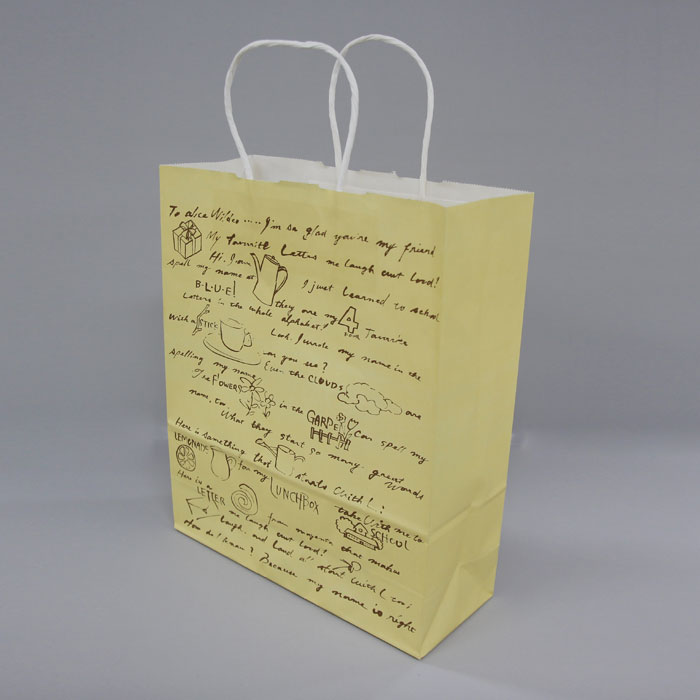 To alice Wilder..... I'm so glad you're my friend
My Favorite Letters me laugh out loud!
Hi. I
spell my name at I just Learned to school
B·L·U·E!
Letters in the whole alphabet! they are my 4 Favorite
With a STICK Look. I wrote my name in the
can you see?
spelling my name Even the CLOUDS are
The FLOWERS in the GARDEN Can spell my
name, too.
What they start so many great words
Here is something that starts with L:
LEMONADE for my LUNCHBOX take With me to
SCHOOL
Here is a LETTER from magenta that makes
me laugh out loud!
Laugh and Loud all start With L too!
How do I know? Because my name is right